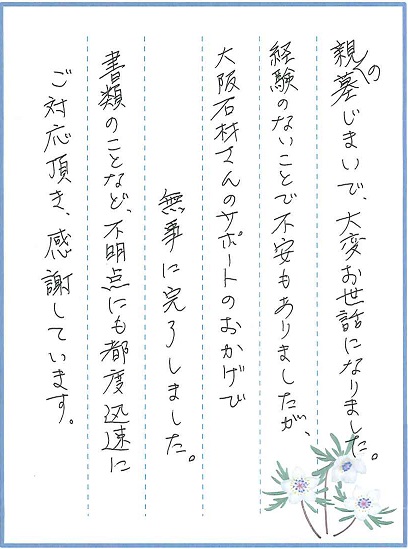 親の墓じまいで、大変お世話になりました。
経験のないことで不安もありましたが、
大阪石材さんのサポートのおかげで
無事に完了しました。
書類のことなど、不明点にも都度迅速に
ご対応頂き、感謝しています。